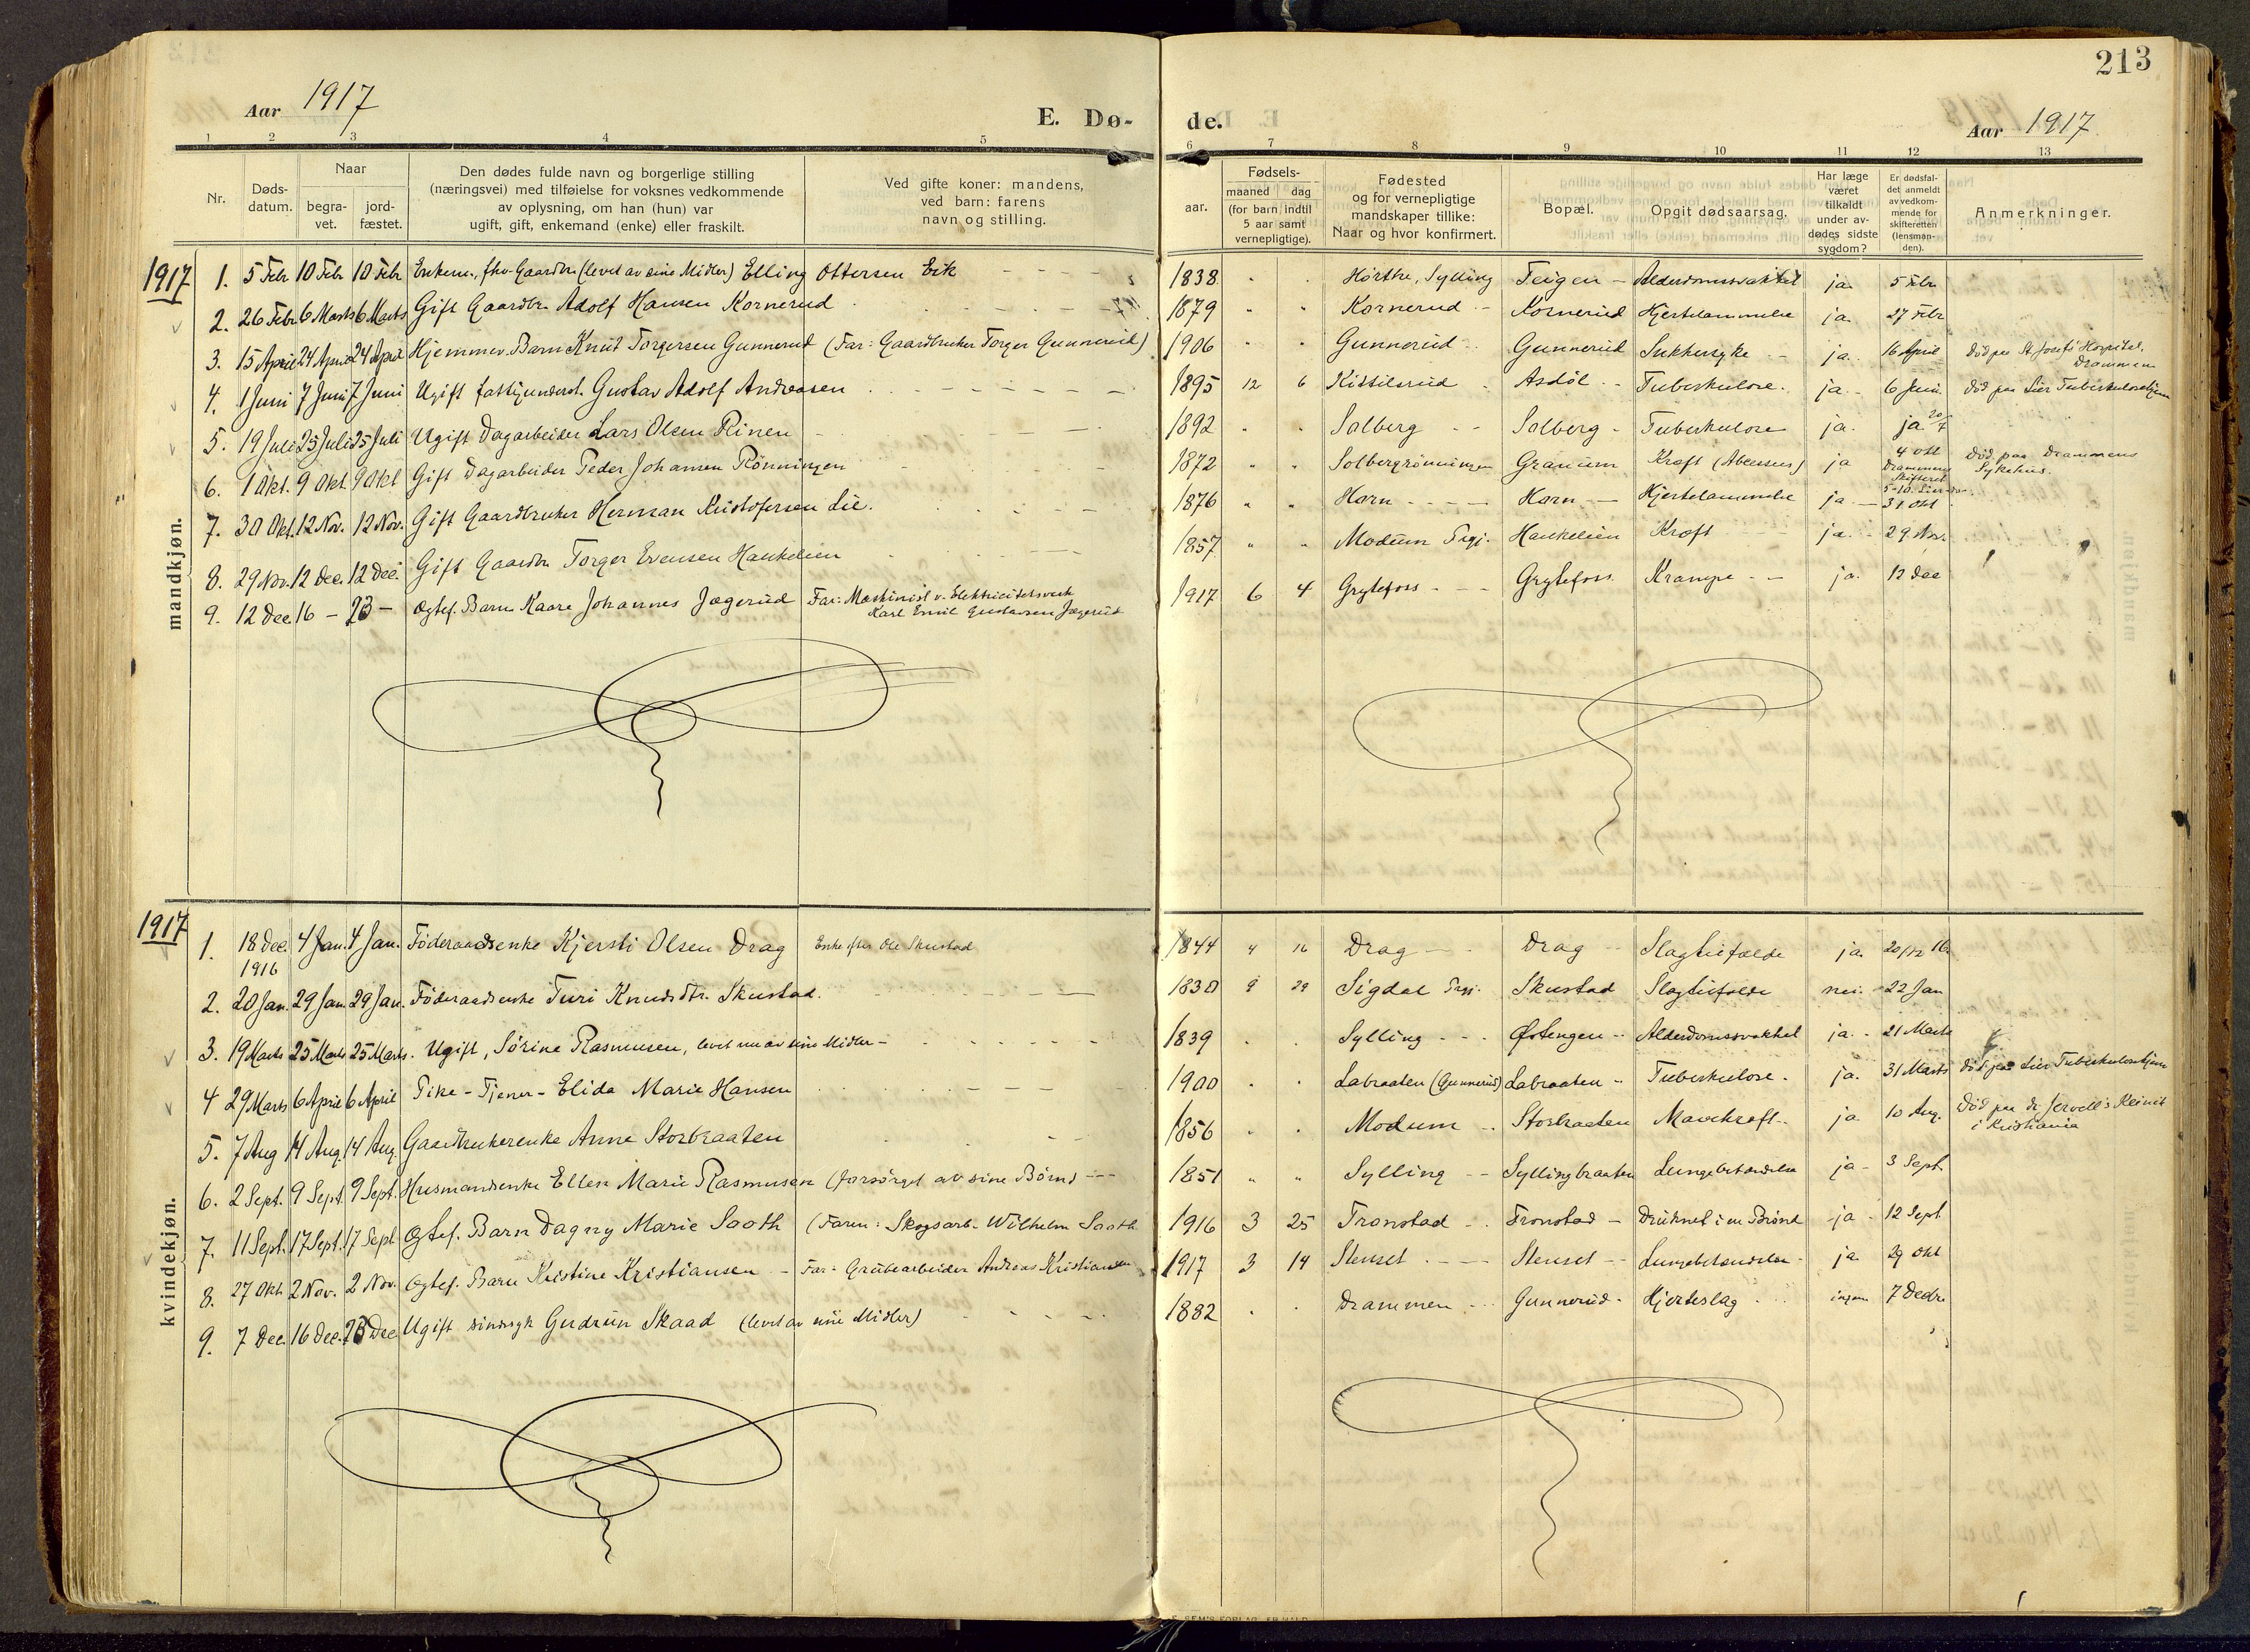 213
Aar 1917
E. Dø-
de.
Aar 1917.
1 2 3 4 5 6 7 8 9 10 11 12 13
Nr.
Døds-
datum.
Naar
begra-
vet.
jord-
fæstet.
Den dødes fulde navn og borgerlige stilling
(næringsvei) med tilføielse for voksnes vedkommende
av oplysning, om han (hun) var
ugift, gift, enkemand (enke) eller fraskilt.
Ved gifte koner: mandens,
ved barn: farens
navn og stilling.
Fødsels-
aar.
maaned dag
(for barn indtil
5 aar samt
vernepligtige).
Fødested
og for vernepligtige
mandskaper tillike:
Naar og hvor konfirmert.
Bopæl.
Opgit dødsaarsag.
Har læge
været
tilkaldt
under av-
dødes sidste
sygdom?
Er dødsfal-
det anmeldt
av vedkom-
mende for
skifteretten
(lensman-
den).
Anmerkninger.
mandkjøn.
1917 1. 5 Febr 10 Febr 10 Febr. Enkem., fhv. Gaardbr. (levet av sine Midler) Elling Ottersen Eik 1838. Hörthe, Sylling Teigen Alderdomssvakhet ja 5 Febr.
2. 26 Febr. 6 Marts 6 Marts Gift Gaardbr. Adolf Hansen Kornerud 1879 " " Kornerud Kornerud Hjertelammelse ja. 27 Febr
3. 15 April 24 April 24 April Hjemmev. Barn Knut Torgersen Gunnerud (Far: Gaardbruker Torger Gunnerud) 1906 " " Gunnerud Gunnerud Sukkersyke ja. 16 April Död paa St. Josefs Hospital, Drammen
4. 1 Juni 7 Juni 7 Juni Ugift fattigunderst. Gustav Adolf Andreasen 1895 12 6 Kittilsrud Asdöl Tuberkulose. ja 6 Juni Död paa Lier Tuberkulosehjem
5. 19 Juli 25 Juli 25 Juli Ugift Dagarbeider Lars Olsen Rinen 1892 Solberg Solberg Tuberkulose ja. ja 20/7
6. 1 Okt. 9 Okt. 9 Okt Gift Dagarbeider Peder Johansen Rönningen 1872 " " Solbergrönningen Kræft (Abcessus) ja 4 okt Drammens Skifteret Död paa Drammens Sykehus.
7. 30 Okt. 12 Nov. 12 Nov. Gift Gaardbruker Herman Kristofersen Lie. 1876 " " Horn Horn Hjertelammelse ja 31 okt.
8. 29 Nov. 12 Dec. 12 Dec. Gift Gaardbr. Torger Evensen Haukelien 1857 " " Modum Prgj. Haukelien Kræft ja. 29 Nov.
9. 12 Dec. 16 – 23 – Ægtef. Barn Kaare Johannes Jægerud Far: Maskinist v. Elektricitetsverk Karl Emil Gustavsen Jægerud 1917 6 4 Grytefoss Grytefoss. Krampe ja. 12 Dec
kvindekjøn.
1917 1. 18 Dec. 1916 4 Jan. 4 Jan. Föderaadsenke Kjersti Olsen Drag Enke efter Ole Skustad 1844 4 16 Drag Drag Slagtilfælde ja. 20/12 16.
2. 20 Jan. 29 Jan. 29 Jan. Föderaadsenke Turi Knudsdtr. Skustad. 1830 9 29 Sigdal Prgj. Skustad Slagtilfælde nei. 22 Jan
3. 19 Marts 25 Marts 25 Marts. Ugift, Sörine Rasmussen, levet nu av sine Midler 1839 Sylling Østengen Alderdomssvakhet ja. 21 Marts
4 29 Marts 6 April 6 April Pike - Tjener - Elida Marie Hansen 1900 Labraaten (Gunnerud) Labraaten Tuberkulose. ja. 31 Marts Död paa Lier Tuberkulosehjem
5. 7 Aug 14 Aug. 14 Aug. Gaardbrukerenke Anne Storbraaten 1856 Modum Storbraaten Mavekræft ja 10 Aug. Död paa dr. Jervell's Klinik i Kristiania
6. 2 Sept. 9 Sept. 9 Sept. Husmandsenke Ellen Marie Rasmusen (forsörget av sine Börn) 1851 " " Sylling Syllingbraaten Lungebetændelse ja 3 Sept.
7. 11 Sept. 17 Sept. 17 Sept Ægtef. Barn Dagny Marie Saoth (Faren: Skogsarb. Wilhelm Saoth 1916 3 25 Tronstad Tronstad Druknet i en Brönd ja 12 Sept
8. 27 Okt. 2 Nov. 2 Nov. Ægtef. Barn Kristine Kristiansen Far: Grubearbeider Andreas Kristiansen 1917 3 14 Stenset Stenset Lungebetændelse ja 29 Okt
9. 7 Dec. 16 Dec. 23 Dec Ugift sindssyk Gudrun Skaad (levet av sine Midler) 1882 Drammen Gunnerud Hjerteslag ingen 7 Decbr.